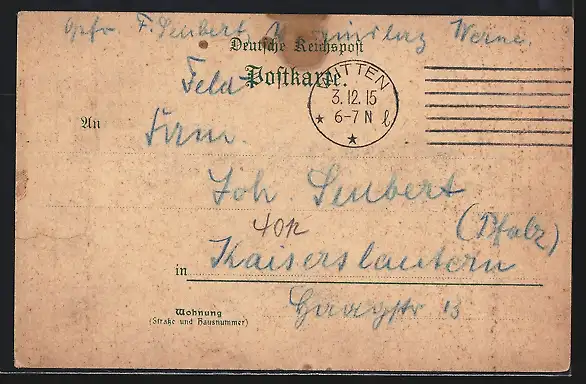 Gefr F. Seubert Werne.
Deutsche Reichspost
Feld Postkarte.
WITTEN
3.12.15
6-7 N
* l
*
An
Fam.
Joh Seubert
(Pfalz)
in Kaiserslautern
Wohnung
(Straße und Hausnummer)
13